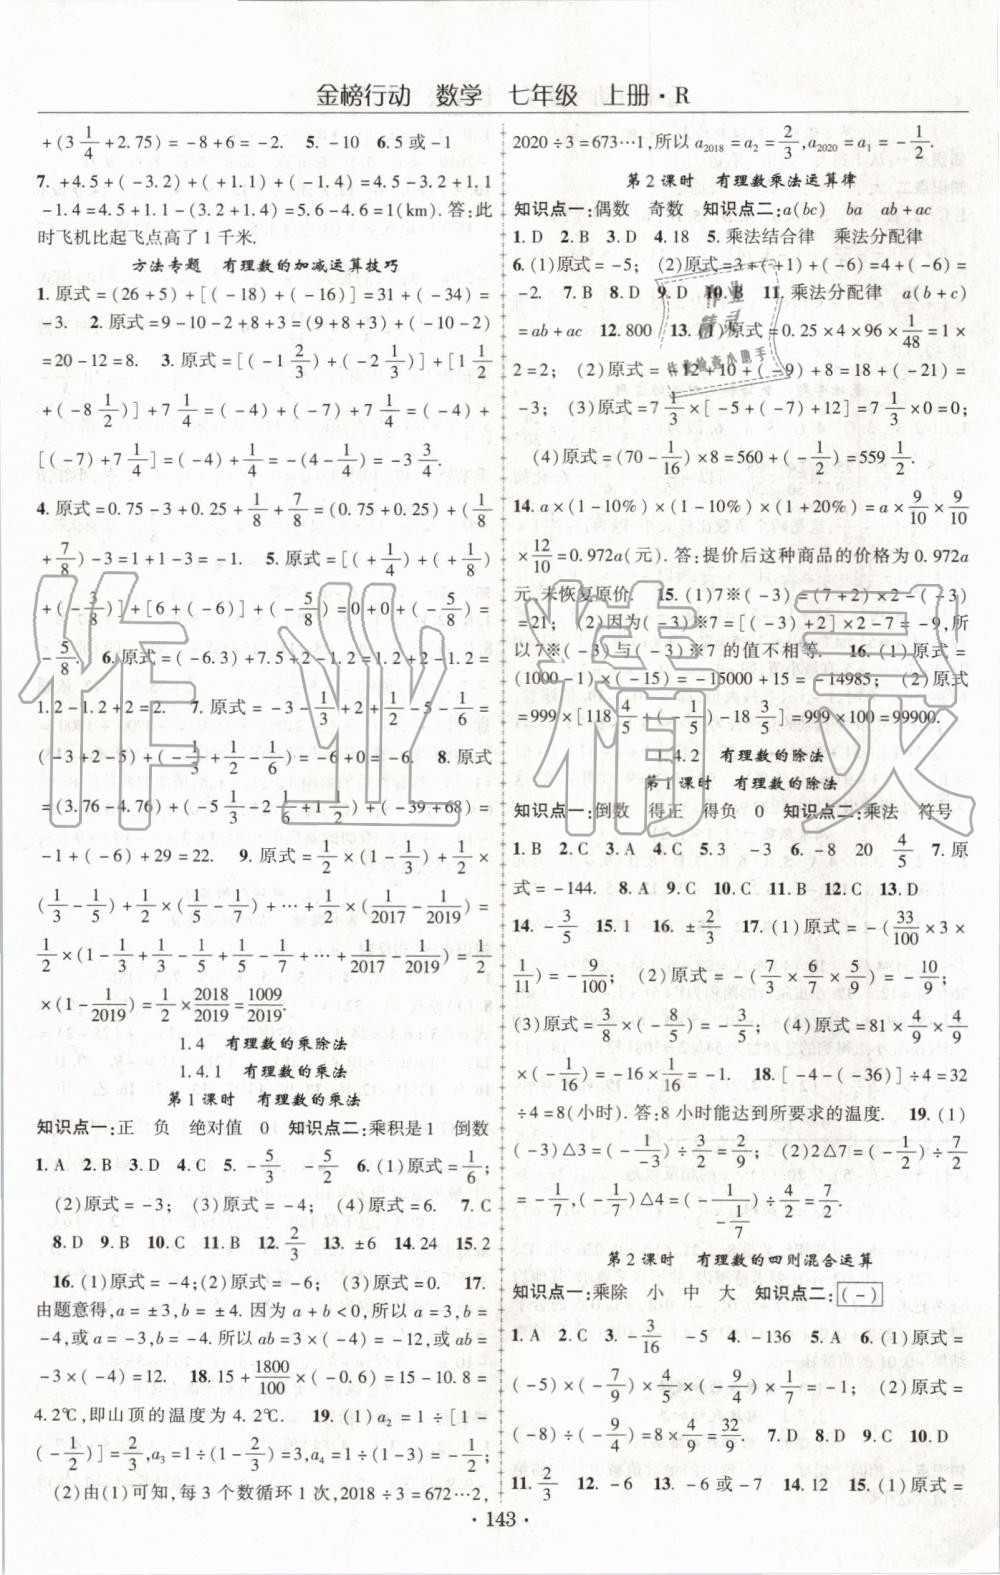 金榜行动 数学 七年级 上册·R
+(3 1/4+2.75)=-8+6=-2. 5.-10 6.5或-1
7.+4.5+(-3.2)+(+1.1)+(-1.4)=4.5-3.2+1.1
-1.4=4.5+1.1-(3.2+1.4)=5.6-4.6=1(km).答:此
时飞机比起飞点高了1千米.
方法专题 有理数的加减运算技巧
1.原式=(26+5)+[(-18)+(-16)]=31+(-34)=
-3. 2.原式=9-10-2+8+3=(9+8+3)+(-10-2)
=20-12=8. 3.原式=[(-1 2/3)+(-2 1/3)]+[1 1/2
+(-8 1/2)]+7 1/4=(-4)+(-7)+7 1/4=(-4)+
[(-7)+7 1/4]=(-4)+1/4=-(4-1/4)=-3 3/4.
4.原式=0.75-3+0.25+1/8+7/8=(0.75+0.25)+(1/8
+7/8)-3=1+1-3=-1. 5.原式=[(+1/4)+(+1/8)
+(-3/8)]+[6+(-6)]+(-5/8)=0+0+(-5/8)=
-5/8. 6.原式=(-6.3)+7.5+2-1.2=1.2+2-1.2=
1.2-1.2+2=2. 7.原式=-3-1/3+2+1/2-5-1/6=
(-3+2-5)+(-1/3+1/2-1/6)=-6+0=-6. 8.原式
=(3.76-4.76)+(-5 1/3-2 1/6+1 1/2)+(-39+68)=
-1+(-6)+29=22. 9.原式=1/2×(1-1/3)+1/2×
(1/3-1/5)+1/2×(1/5-1/7)+…+1/2×(1/2017-1/2019)=
1/2×(1-1/3+1/3-1/5+1/5-1/7+…+1/2017-1/2019)=1/2
×(1-1/2019)=1/2×2018/2019=1009/2019.
1.4 有理数的乘除法
1.4.1 有理数的乘法
第1课时 有理数的乘法
知识点一:正 负 绝对值 0 知识点二:乘积是1 倒数
1.A 2.B 3.D 4.C 5.-5/3 -5/3 6.(1)原式=1/6;
(2)原式=-3; (3)原式=-4; (4)原式=6. 7.C
8.D 9.D 10.C 11.B 12.2/3 13.±6 14.24 15.2
16.(1)原式=-4;(2)原式=-6; (3)原式=0. 17.
由题意得,a=±3,b=±4.因为a+b<0,所以a=3,b=
-4,或a=-3,b=-4.所以ab=3×(-4)=-12,或ab=
-3×(-4)=12. 18.15+1800/100×(-0.6)=15-10.8=
4.2℃,即山顶的温度为4.2℃. 19.(1)a2=1÷[1-
(-1/2)]=2/3,a3=1÷(1-2/3)=3,a4=1÷(1-3)=-1/2.
(2)由(1)可知,每3个数循环1次,2018÷3=672…2,
2020÷3=673…1,所以a2018=a2=2/3,a2020=a1=-1/2.
第2课时 有理数乘法运算律
知识点一:偶数 奇数 知识点二:a(bc) ba ab+ac
1.D 2.B 3.D 4.18 5.乘法结合律 乘法分配律
6.(1)原式=-5; (2)原式=3+(+1)+(-6)=4+(-6)=
-2. 7.B 8.D 9.D 10.B 11.乘法分配律 a(b+c)
=ab+ac 12.800 13.(1)原式=0.25×4×96×1/48=1×
2=2; (2)原式=-12+10+(-9)+8=18+(-21)=
-3; (3)原式=7 1/3×[-5+(-7)+12]=7 1/3×0=0;
(4)原式=(70-1/16)×8=560+(-1/2)=559 1/2.
14.a×(1-10%)×(1-10%)×(1+20%)=a×9/10×9/10
×12/10=0.972a(元).答:提价后这种商品的价格为0.972a
元.未恢复原价. 15.(1)7※(-3)=(7+2)×2-(-3)
=21; (2)因为(-3)※7=[(-3)+2]×2-7=-9,所
以7※(-3)与(-3)※7的值不相等. 16.(1)原式=
(1000-1)×(-15)=-15000+15=-14985; (2)原式
=999×[118 4/5+(-1/5)-18 3/5]=999×100=99900.
1.4.2 有理数的除法
第1课时 有理数的除法
知识点一:倒数 得正 得负 0 知识点二:乘法 符号
1.B 2.C 3.A 4.C 5.3 -3 6.-8 20 4/5 7.原
式=-144. 8.A 9.C 10.C 11.B 12.C 13.D
14.-3/5 15.1 16.±2/3 17.(1)原式=-(33/100×3×
1/11)=-9/100; (2)原式=-(7/3×6/7×5/9)=-10/9;
(3)原式=3/8×(-8/5)=-3/5; (4)原式=81×4/9×4/9
×(-1/16)=-1. 18.[-4-(-36)]÷4=32
÷4=8(小时).答:8小时能达到所要求的温度. 19.(1)
(-3)△3=(-1/-3)÷3/2=2/9; (2)2△7=(-1/2)÷7/2
=-1/7,(-1/7)△4=(-1/-1/7)÷4/2=7/2.
第2课时 有理数的四则混合运算
知识点一:乘除 小 中 大 知识点二:(-)
1.A 2.C 3.-3/16 -5 4.-136 5.A 6.(1)原式=
(-5)×(-7/5)×(-9/4)×(-4/9)×1/7=-1; (2)原式=
(-8)÷(-9/4)=8×4/9=32/9. 7.D 8.D 9.C 10.D
11.2/3 12.-6 13.-6或-2 14.12 15.(1)原式=
·143·
作业精灵
作业
精灵
作业检查小帮手